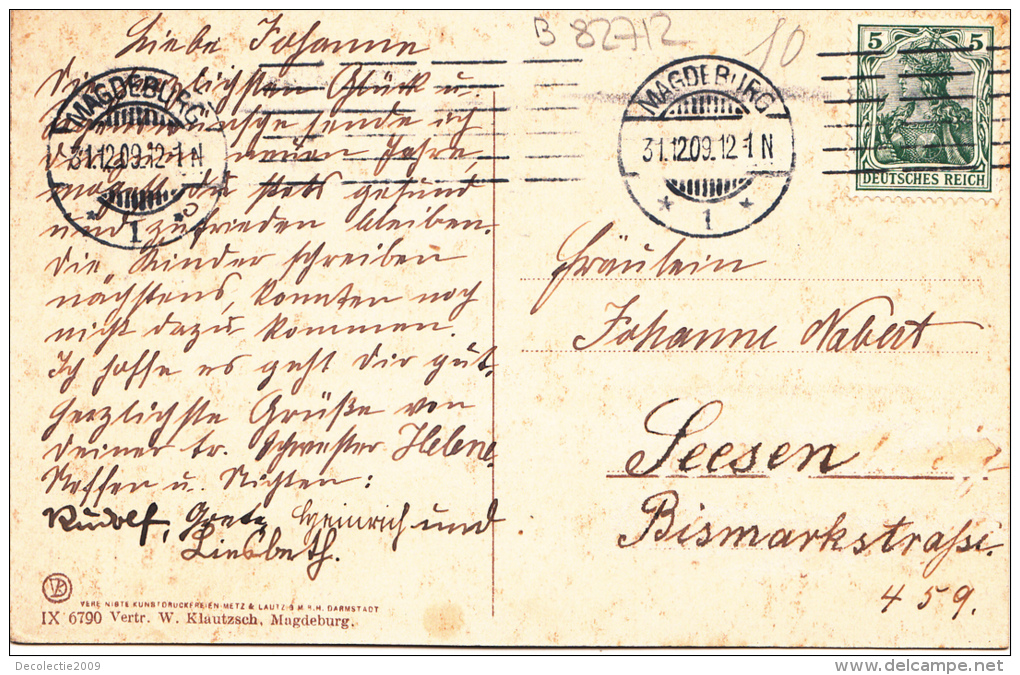 B 82712
10
Liebe Johanne
Die herzlichsten Glück u.
Segenswünsche sende ich
Dir zum neuen Jahre
mögest du stets gesund
und zufrieden bleiben.
Die Kinder schreiben
nächstens, konnten noch
nicht dazu kommen.
Ich hoffe es geht Dir gut.
Herzlichste Grüße von
deiner tr. Schwester Helene
Neffen u. Nichten:
Rudolf, Grete, Heinrich und
Liesbeth.
MAGDEBURG
31.12.09.12-1 N
* 1 *
MAGDEBURG
31.12.09.12-1 N
* 1 *
5 5
DEUTSCHES REICH
Fräulein
Johanne Nabert
Seesen
Bismarkstraße.
459.
VEREINIGTE KUNSTDRUCKEREIEN METZ & LAUTZ G.M.B.H. DARMSTADT
IX 6790 Vertr. W. Klautzsch, Magdeburg.
Decolectie2009
http://decolectie2009.delcampe.net